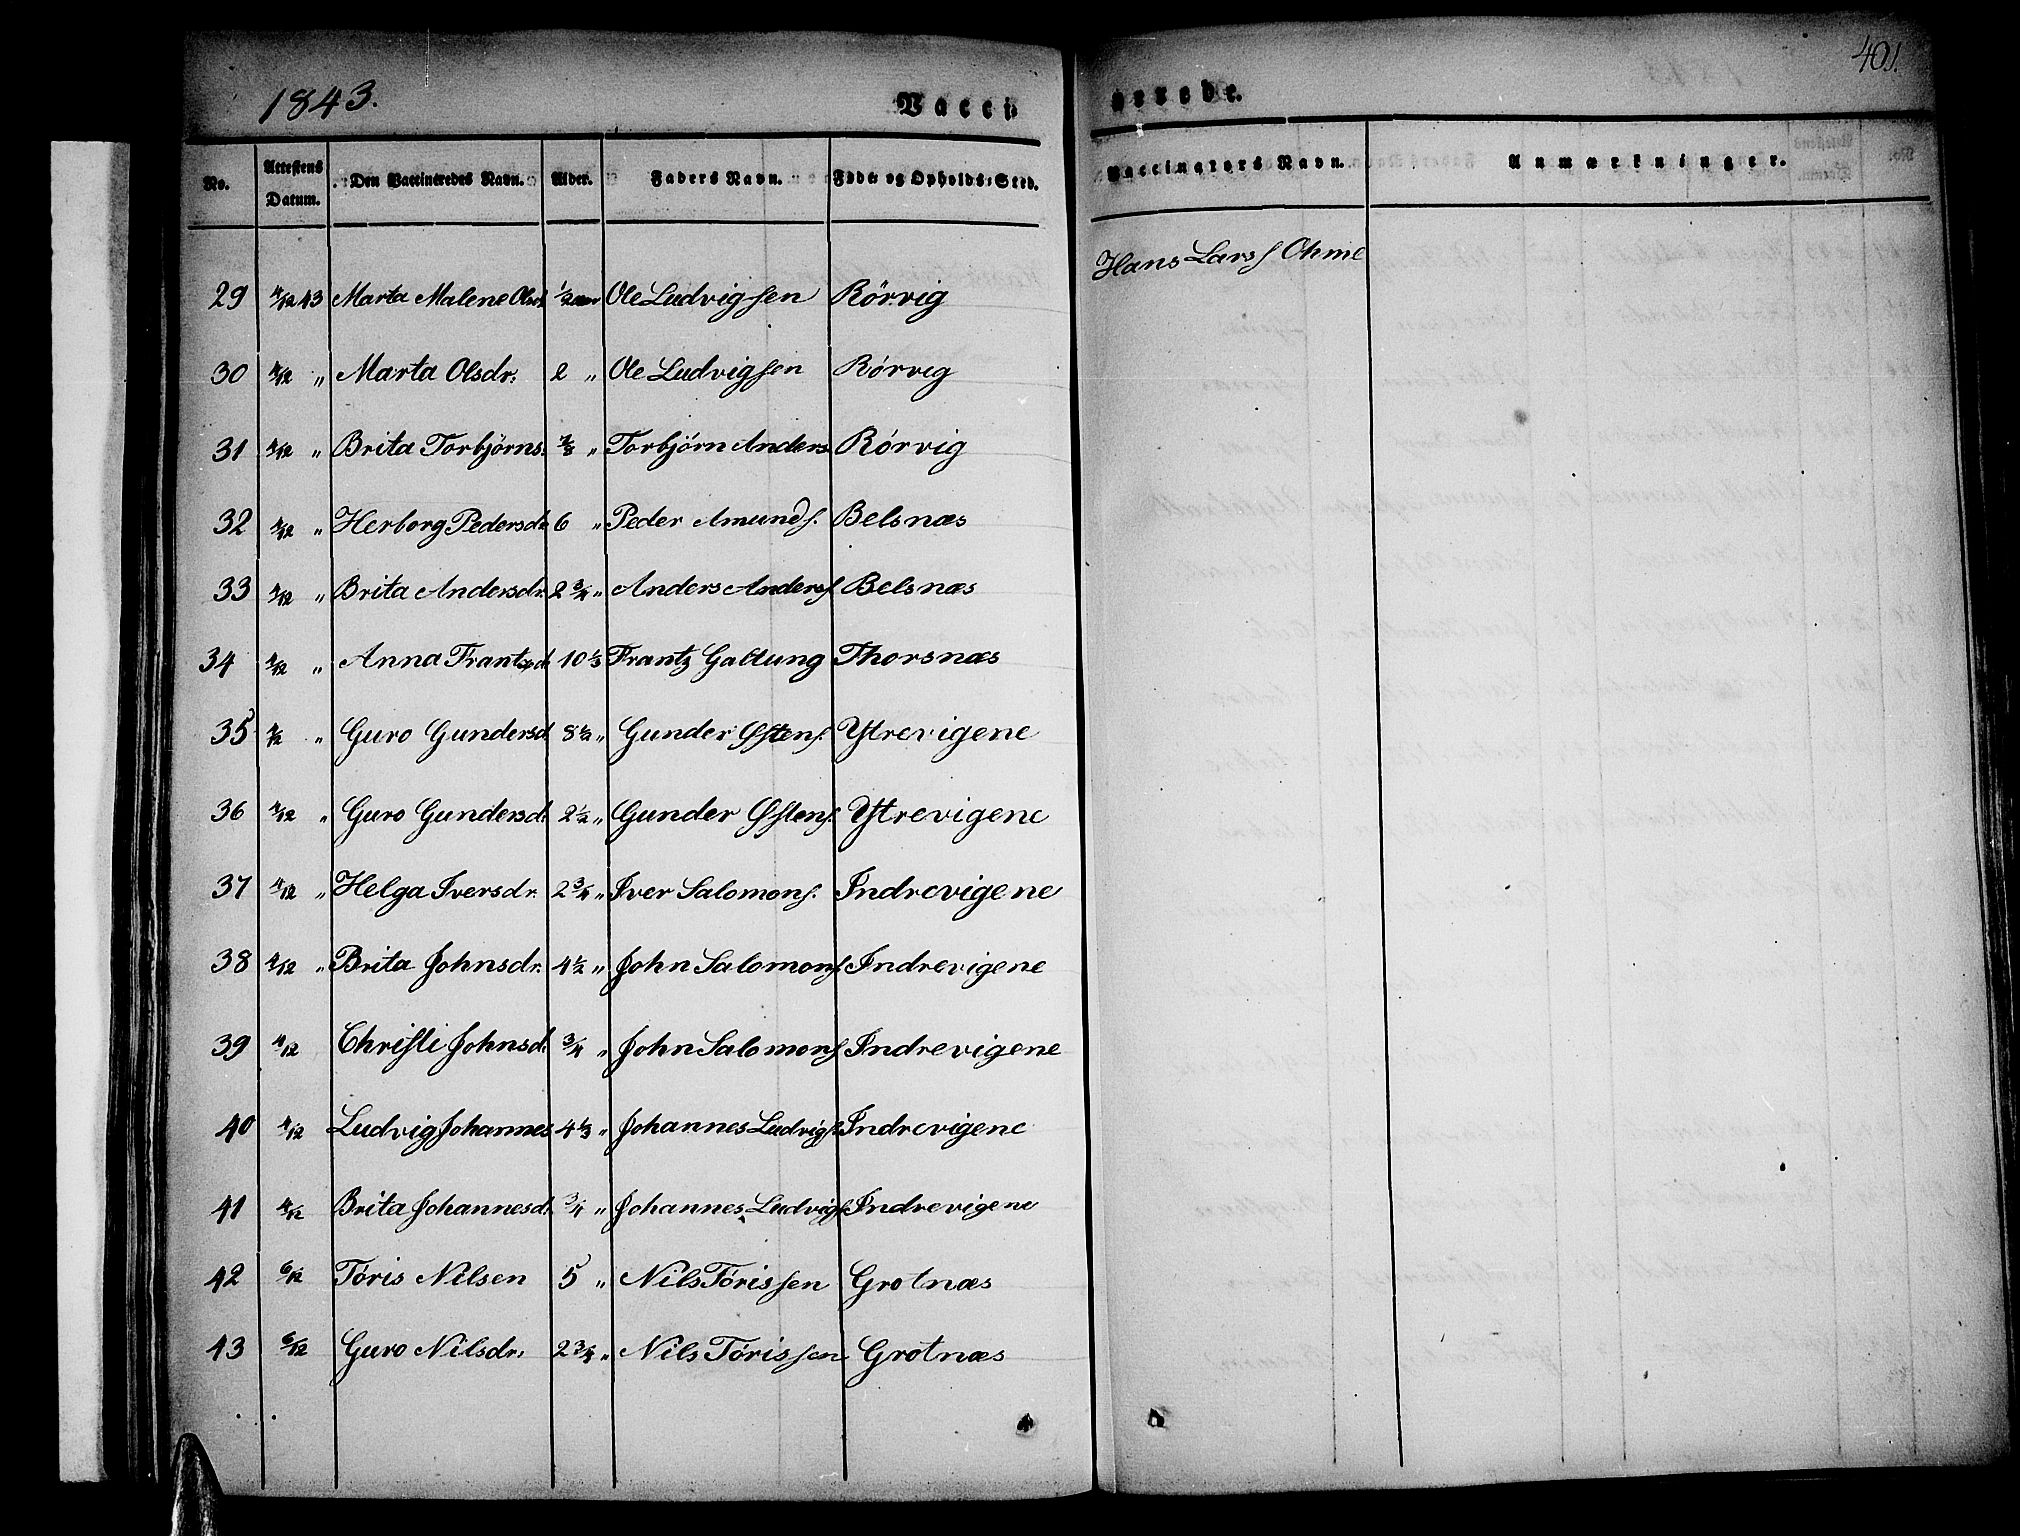 1843. Vacci- nerede. 401.
No. Attestens Datum. Den Vaccineredes Navn. Alder. Faders Navn. Føde- og Opholds-Sted. Vaccinators Navn. Anmærkninger.
Hans Lars Ohme
29 4/12 43 Marta Malene Olsd. 1/2 Ole Ludvigsen Rörvig
30 4/12 " Marta Olsdr. 2 " Ole Ludvigsen Rörvig
31 4/12 " Brita Torbjörns. " Torbjörn Anders Rörvig
32 4/12 " Herborg Pedersd. 6 " Peder Amunds. Belsnæs
33 4/12 " Brita Andersdr. 2 3/4 " Anders Anders. Belsnæs
34 4/12 " Anna Frantzd. 10 1/3 Frantz Galtung Thorsnæs
35 4/12 " Guro Gundersd. 8 1/2 " Gunder Østens. Ytrevigene
36 4/12 " Guro Gundersd. 2 1/2 " Gunder Østens. Ytrevigene
37 4/12 " Helga Iversdr. 2 3/4 " Iver Salomons. Indrevigene
38 4/12 " Brita Johnsdr. 4 1/2 " John Salomons. Indrevigene
39 4/12 Christi Johnsd. 3/4 " John Salomons. Indrevigene
40 4/12 Ludvig Johannes 4 1/3 " Johannes Ludvigs. Indrevigene
41 4/12 Brita Johannesd. 3/4 " Johannes Ludvigs. Indrevigene
42 6/12 Tóris Nilsen 5 " Nils Tórissen Grotnæs
43 6/12 Guro Nilsdr. 2 3/4 " Nils Tórissen Grotnæs